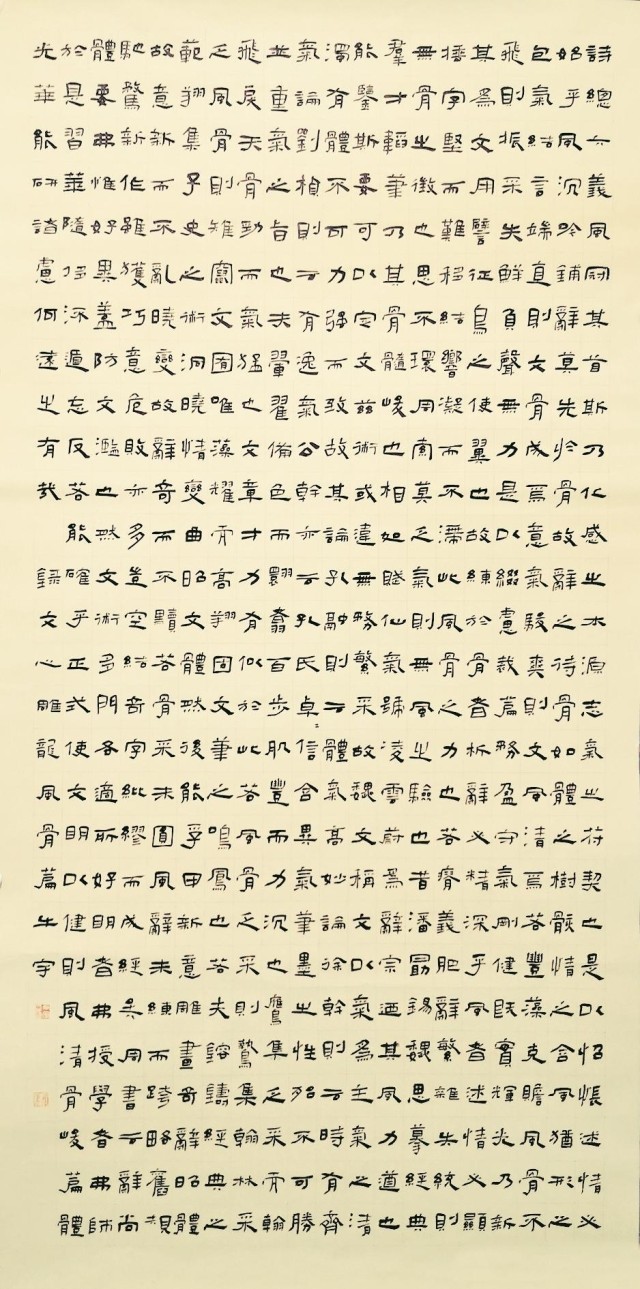 詩總六義風冠其首斯乃化感之本源志氣之符契也是以怊悵述情必
始乎風沉吟鋪辭莫先於骨故辭之待骨如體之樹骸情之含風猶形之
包氣結言端直則文骨成焉意氣駿爽則文風清焉若豐藻克贍風骨不
飛則振采失鮮負聲無力是以綴慮裁篇務盈守氣剛健既實輝光乃新
其爲文用譬征鳥之使翼也故練於骨者析辭必精深乎風者述情必顯
捶字堅而難移結響凝而不滯此風骨之力也若瘠義肥辭繁雜失統則
無骨之徵也思不環周索莫乏氣則無風之驗也昔潘勗錫魏思摹經典
羣才韜筆乃其骨髓峻也相如賦仙氣號凌雲蔚爲辭宗迺其風力遒也
能鑒斯要可以定文茲術或違無務繁采故魏文稱文以氣爲主氣之清
濁有體不可力強而致故其論孔融則云體氣高妙論徐幹則云時有齊
氣論劉楨則云有逸氣公幹亦云孔氏卓〻信含異氣筆墨之性殆不可勝
並重氣之旨也夫翬翟備色而翾翥百步肌豐而力沉也鷹隼乏采而翰
飛戾天骨勁而氣猛也文章才力有似於此若風骨乏采則鷙集翰林采
乏風骨則雉竄文囿唯藻耀而高翔固文筆之鳴鳳也若夫鎔鑄經典之
範翔集子史之術洞曉情變曲昭文體然後能孚甲新意雕畫奇辭昭體
故意新而不亂曉變故辭奇而不黷若骨采未圓風辭未練而跨略舊規
馳騖新作雖獲巧意危敗亦多豈空結奇字紕繆而成經矣周書云辭尚
體要弗惟好異蓋防文濫也然文術多門各適所好明者弗授學者弗師
於是習華隨侈流遁忘反若能確乎正式使文明以健則風清骨峻篇體
光華能研諸慮何遠之有哉 錄文心雕龍風骨篇牛宇